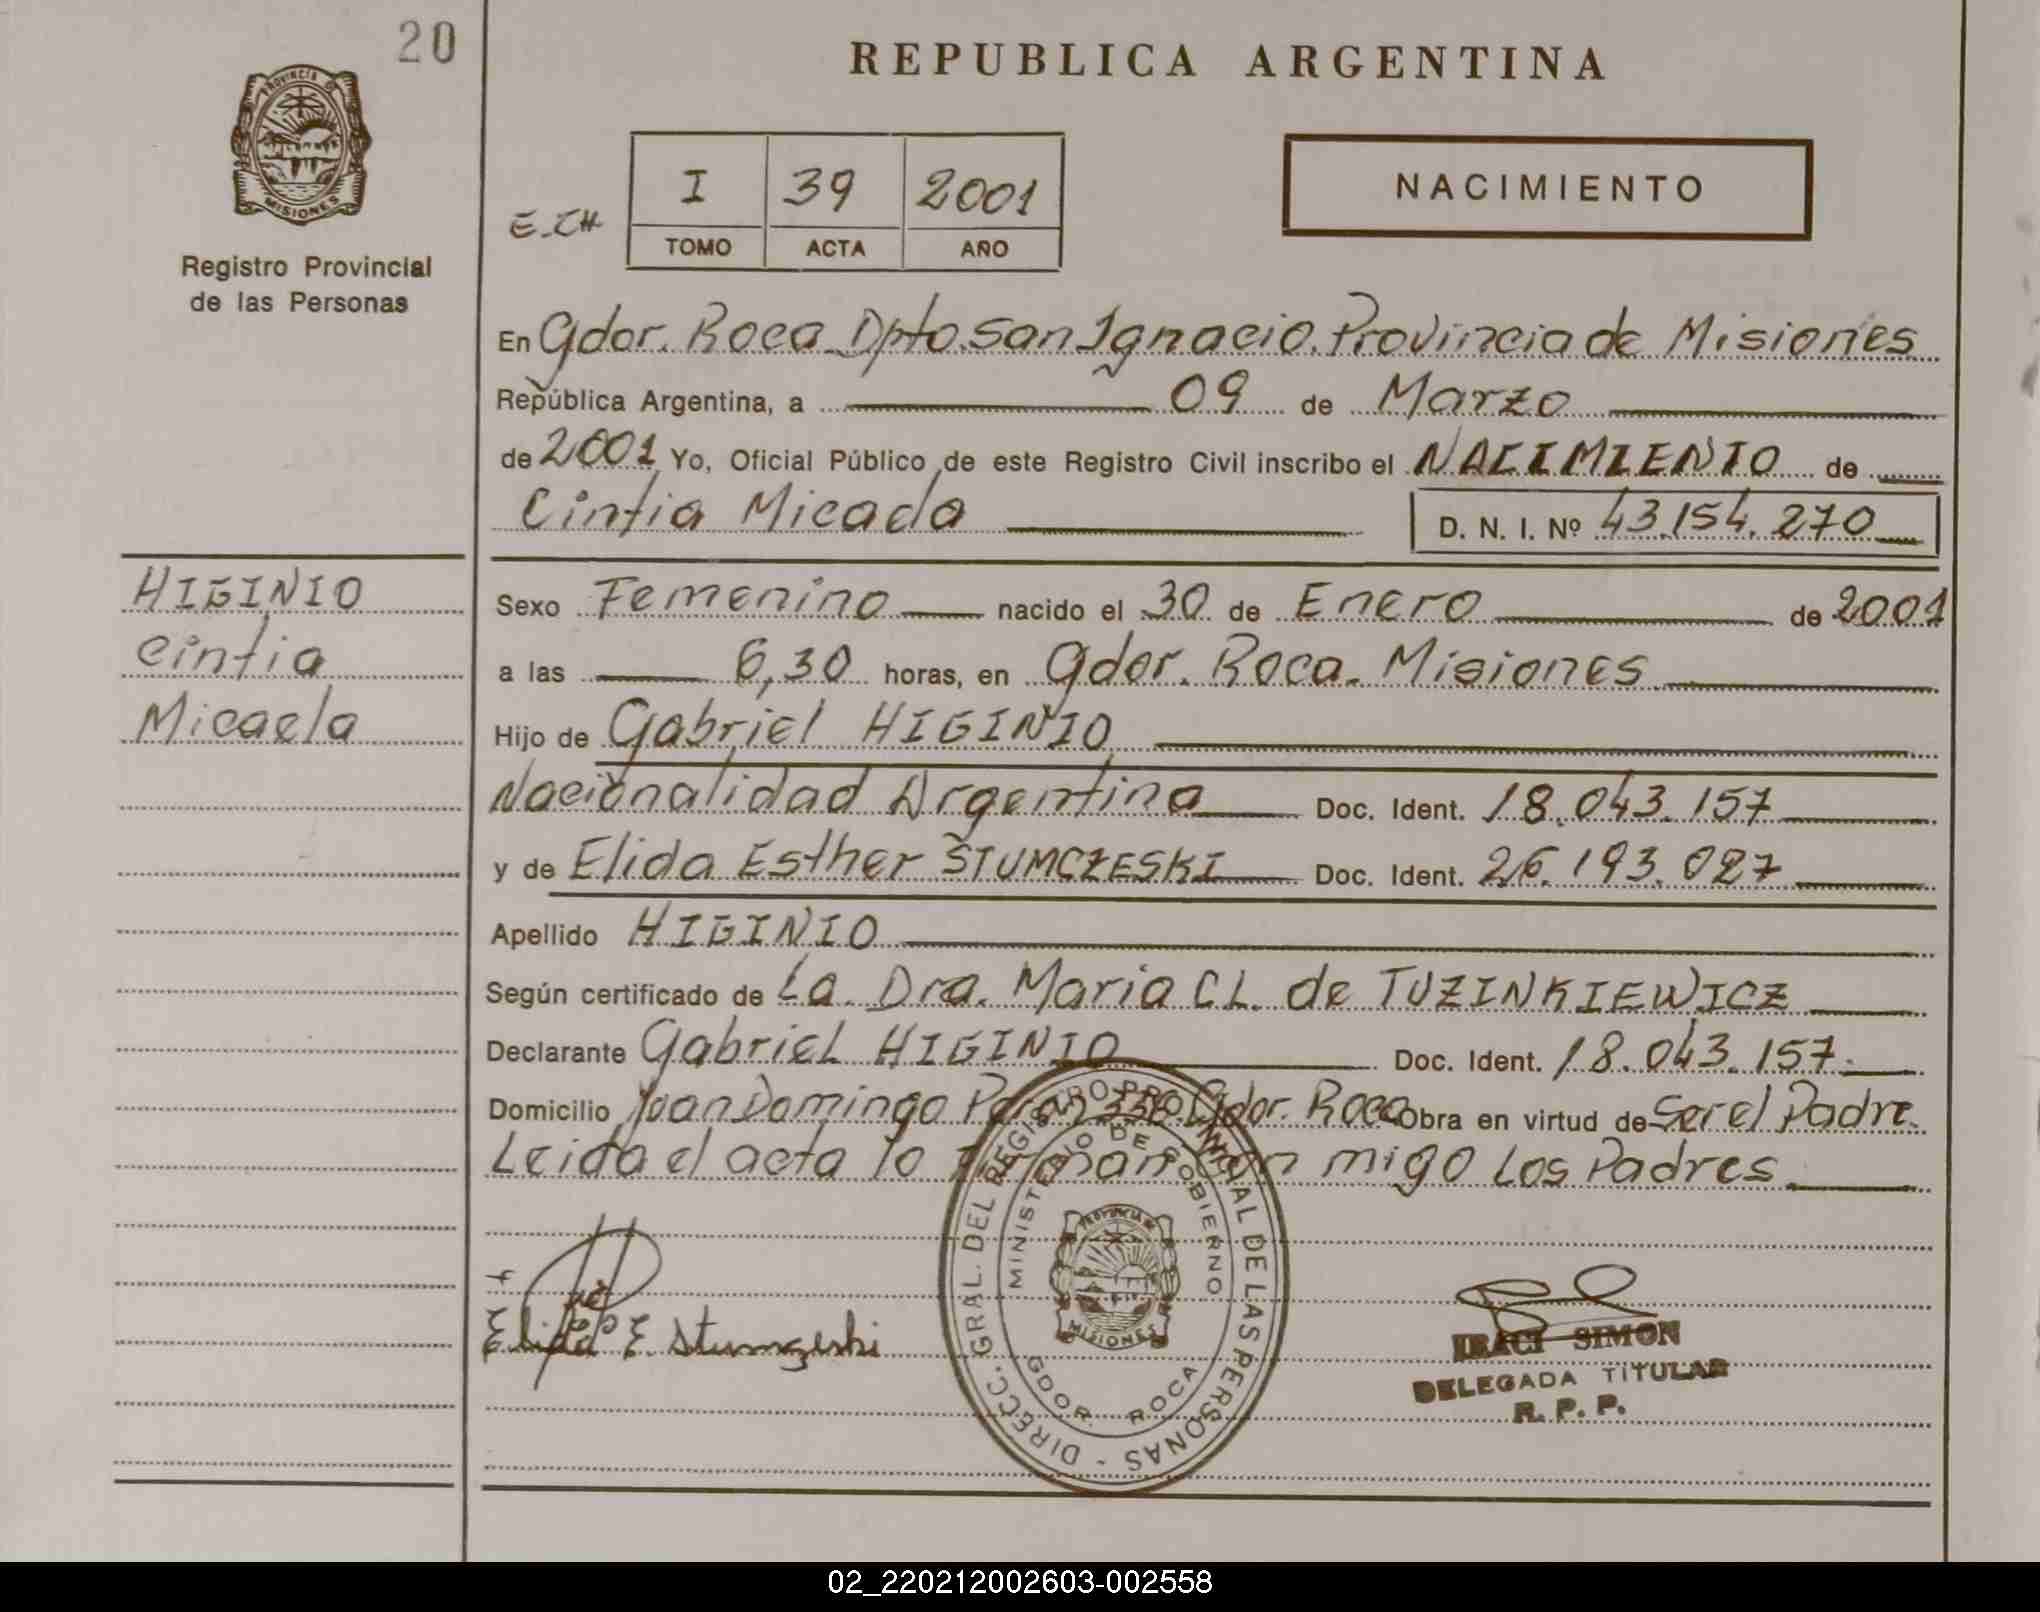 20
REPUBLICA ARGENTINA
PROVINCIA DE
MISIONES
Registro Provincial
de las Personas
E.CH
I 39 2001
TOMO ACTA AÑO
NACIMIENTO
En Gdor. Roca Dpto. San Ignacio. Provincia de Misiones
República Argentina, a 09 de Marzo
de 2001 Yo, Oficial Público de este Registro Civil inscribo el NACIMIENTO de
Cintia Micaela
D. N. I. Nº 43.154.270
HIGINIO
Cintia
Micaela
Sexo Femenino nacido el 30 de Enero de 2001
a las 6,30 horas, en Gdor. Roca. Misiones
Hijo de Gabriel HIGINIO
Nacionalidad Argentina Doc. Ident. 18.043.157
y de Elida Esther STUMCZESKI Doc. Ident. 26.193.027
Apellido HIGINIO
Según certificado de La. Dra. Maria CL. de TUZINKIEWICZ
Declarante Gabriel HIGINIO Doc. Ident. 18.043.157.
Domicilio Juan Domingo Gdor. Roca Obra en virtud de Ser el Padre.
Leida el acta lo migo Los Padres
Elida E. Stumzeski
DIRECC. GRAL. DEL REGISTRO PROVINCIAL DE LAS PERSONAS -
MINISTERIO DE GOBIERNO
PROVINCIA DE
MISIONES
GDOR ROCA
IRACI SIMON
DELEGADA TITULAR
R. P. P.
02_220212002603-002558